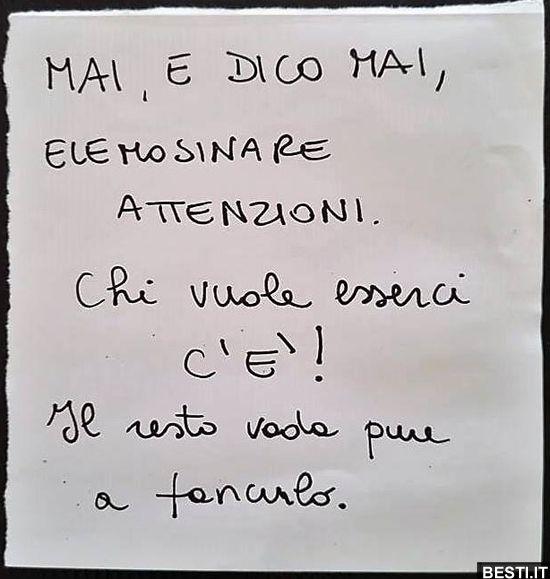 MAI, E DICO MAI,
ELEMOSINARE
ATTENZIONI.
Chi vuole esserci
C'E'!
Il resto vada pure
a fanculo.
BESTI.IT